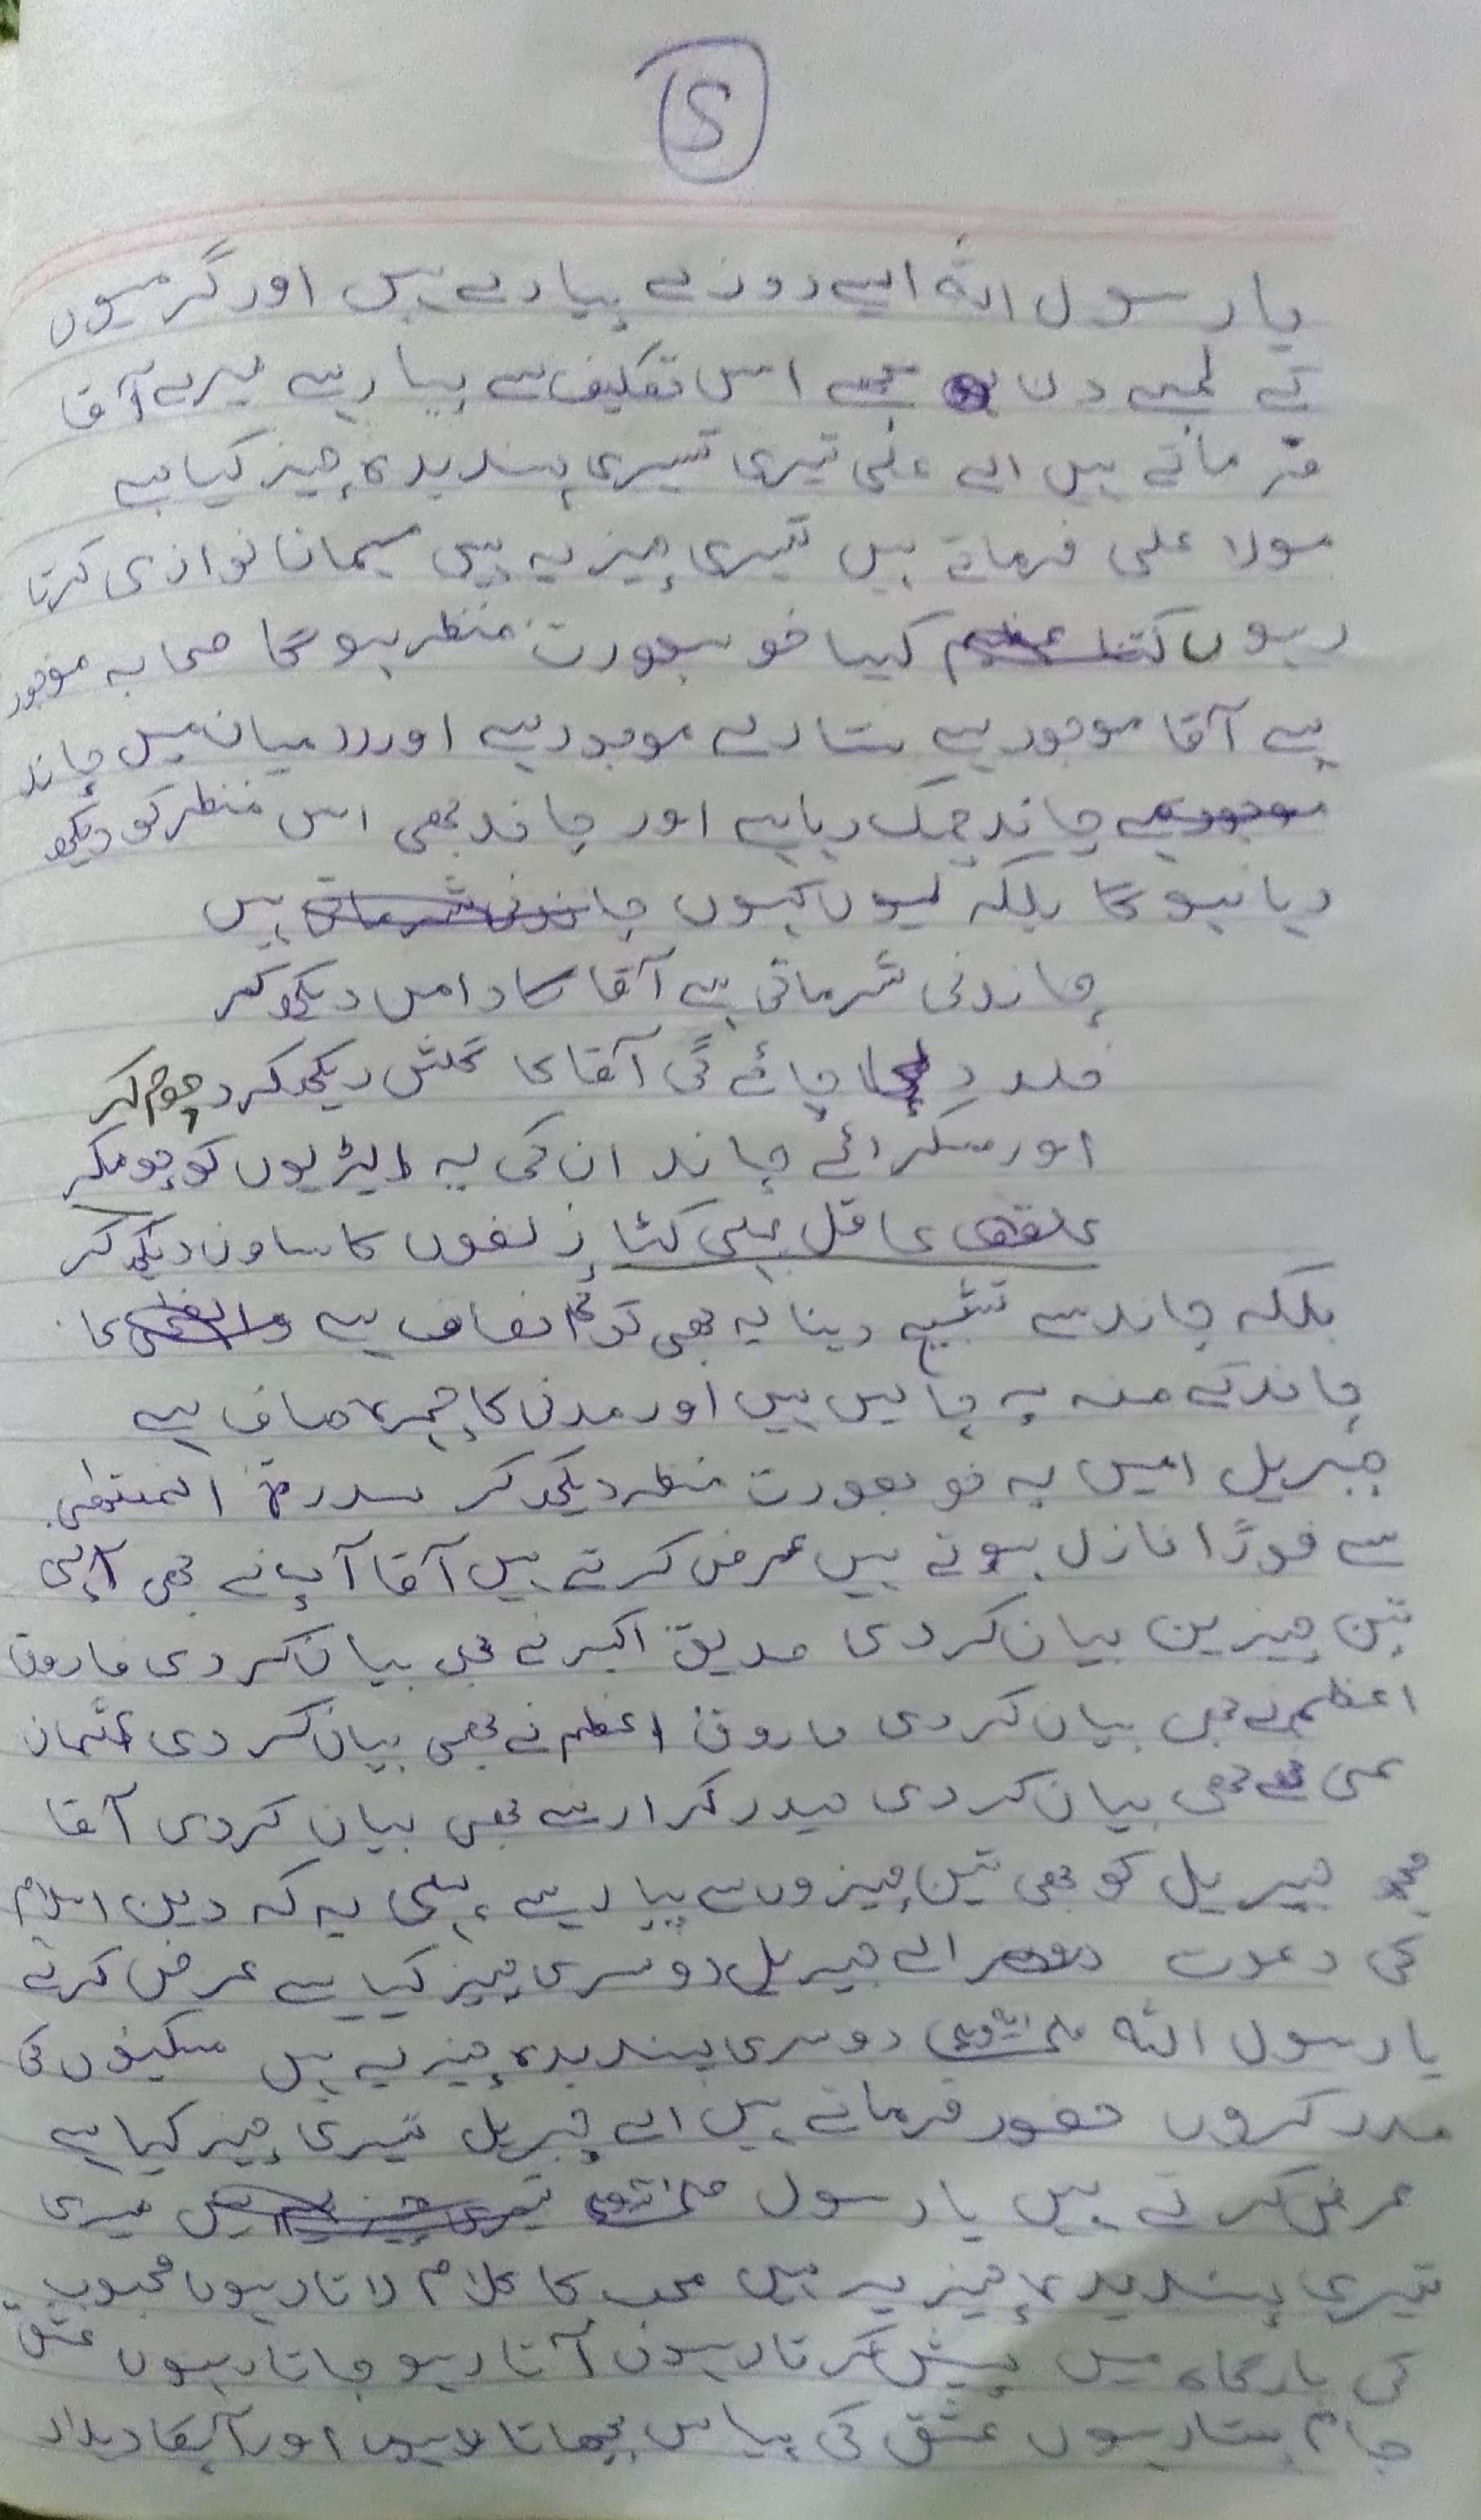 5
یا رسول اللہ ایسے روزے پیارے ہیں اور گرمیوں
کے لمبے دن مجھے اس تکلیف سے پیار ہے میرے آقا
فرماتے ہیں اے علی تیری تیسری پسندیدہ چیز کیا ہے
مولا علی فرماتے ہیں تیسری چیز یہ ہیں میمان نوازی کرتا
رہوں کتنا عظیم کیسا خوبصورت منظر ہوگا صحابہ موجود
ہے آقا موجود ہے ستارے موجود ہے اور درمیان میں چاند
موجود ہے چاند چمک رہا ہے اور چاند بھی اس منظر کو دیکھ
رہا ہوگا بلکہ یوں کہوں چاندنی شرماتی ہیں
چاندنی شرماتی ہے آقا کا دامن دیکھ کر
خلد جائے گی آقا کا گلشن دیکھ کر چوم کر
اور مسکرائے چاند ان کی یہ ایڑیوں کو چوم کر
زلفوں کا ساون دیکھ کر
بلکہ چاند سے تشبیہ دینا یہ بھی تو انصاف ہے کا
چاند کے منہ پہ چائیں ہیں اور مدنی کا چہرہ صاف ہے
جبریل امیں یہ خوبصورت منظر دیکھ کر سدرۃ المنتھی
سے فوراً نازل ہوتے ہیں عرض کرتے ہیں آقا آپ نے بھی اپنی
تین چیزین بیان کر دی صدیق اکبر نے بھی بیان کر دی فاروق
اعظم نے بھی بیان کر دی فاروق اعظم نے بھی بیان کر دی عثمان
غنی نے بھی بیان کر دی حیدر کرار نے بھی بیان کر دی آقا
مجھ جبریل کو بھی تین چیزوں سے پیار ہے پہلی یہ کہ دین اسلام
کی دعوت اے جبریل دوسری چیز کیا ہے عرض کرتے
یا رسول اللہ دوسری پسندیدہ چیز یہ ہیں مسکینوں کی
مدد کروں حضور فرماتے ہیں اے جبریل تیسری چیز کیا ہے
عرض کرتے ہیں یا رسول تیسری چیز یہ ہیں میری
تیسری پسندیدہ چیز یہ ہیں محب کا کلام لاتا رہوں محبوب
کی بارگاہ میں پیش کرتا رہوں آتا رہو جاتا رہوں عشق
جام پیتا رہوں عشق کی پیاس بجھاتا رہوں اور آپکا دیدار